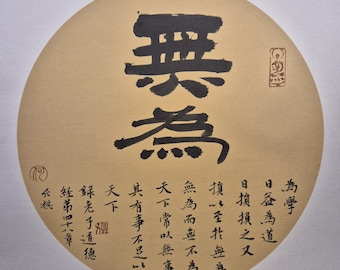 無為
為學
日益為道
日損損之又
損以至於無為
無為而無不為
天下常以無事
其有事不足以
天下
錄老子道德
經第四十八章